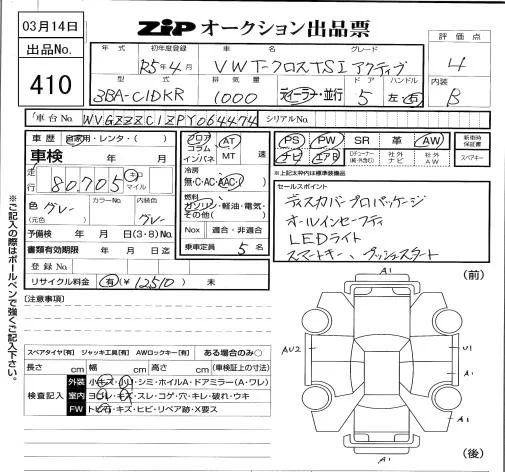 03月14日
出品No.
410
ZIP オークション出品票
評価点
4
内装
B
年式 初年度登録 車名 グレード
R5年4月 VW T-クロス TSI アクティブ
型式 排気量 ドア ハンドル
3BA-C1DKR 1000 ディーラー・並行 5 左・右
車台No. WVGZZZC1ZPY064474 シリアルNo.
車歴 自家用・レンタ・( )
車検 年 月
走行 80,705 キロ マイル
色 グレー (元色) カラーNo. 内装色 グレー
予備検 年 月 日(3・8)No.
書類有効期限 年 月 日迄
登録No.
リサイクル料金 有(¥12510) 未
フロア コラム インパネ
AT MT 速
冷房
無・C・AC・AAC・( )
燃料
ガソリン・軽油・電気・その他( )
Nox 適合・非適合
乗車定員 5 名
PS PW SR 革 AW
ナビ エアB 社外ナビ 社外AW
新車時保証書
スペアキー
※上記太枠内は標準装備品
セールスポイント
ディスカバープロパッケージ
オールインセーフティ
LEDライト
スマートキー、プッシュスタート
[注意事項]
スペアタイヤ[有] ジャッキ工具[有] AWロックキー[有] ある場合のみ○
長さ cm 幅 cm 高さ cm (車検証上の寸法)
検査記入
外装 小キズ・小凹・シミ・ホイルA・ドアミラー(A・ワレ)
室内 ヨゴレ・キズ・スレ・コゲ・穴・キレ・破れ・ウキ
FW トビ石・キズ・ヒビ・リペア跡・X要ス
※ご記入の際はボールペンで強くご記入下さい。
(前)
A1
AU2
U1
A1
A1
(後)